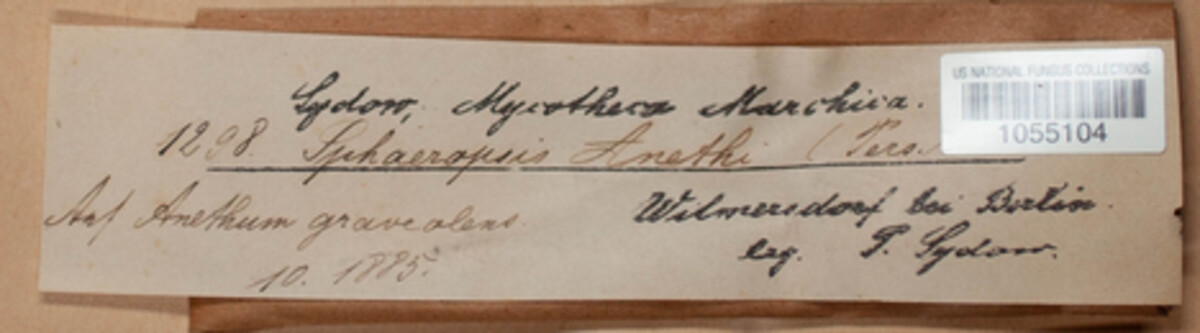 US NATIONAL FUNGUS COLLECTIONS
1055104
Sydow, Mycotheca Marchica.
1298. Sphaeropsis Anethi (Pers.
Auf Anethum graveolens.
10. 1885.
Wilmersdorf bei Berlin.
leg. P. Sydow.